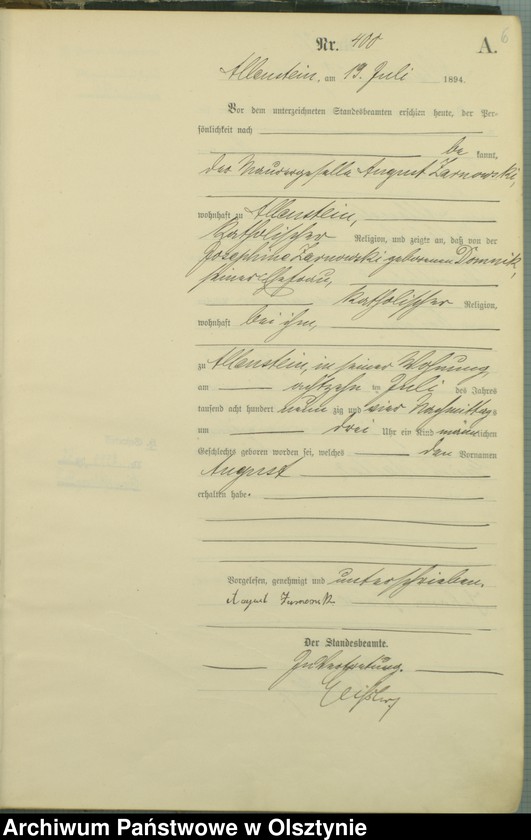 6
Nr. 400
A.
Allenstein, am 19. Juli 1894.
Vor dem unterzeichneten Standesbeamten erschien heute, der Per-
sönlichkeit nach
be kannt,
der Maurergeselle August Zarnowski,
wohnhaft zu Allenstein,
katholischer Religion, und zeigte an, daß von der
Josephine Zarnowski geborenen Domnik,
seiner Ehefrau,
katholischer Religion,
wohnhaft bei ihm,
zu Allenstein, in seiner Wohnung
am achtzehn ten Juli des Jahres
tausend acht hundert neun zig und vier Nachmittags
um drei Uhr ein Kind männlichen
Geschlechts geboren worden sei, welches den Vornamen
August
erhalten habe.
Vorgelesen, genehmigt und unterschrieben.
August
Der Standesbeamte.
In Vertretung.
Archiwum Państwowe w Olsztynie